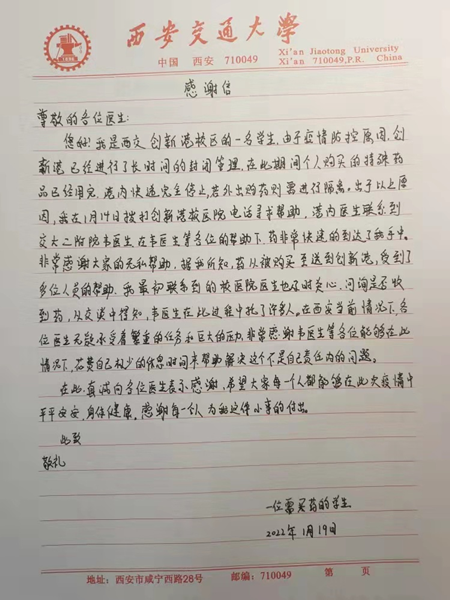 西安交通大学
中国 西安 710049
Xi'an Jiaotong University
Xi'an 710049,P.R. China
感谢信
尊敬的各位医生:
您好!我是西交创新港校区的一名学生,由于疫情防控原因,创
新港已经进行了长时间的封闭管理,在此期间个人购买的特殊药
品已经用完,港内快递完全停止,若外出购药则需进行隔离。出于以上原
因,我在1月17日拨打创新港校医院电话寻求帮助,港内医生联系到
交大二附院韦医生,在韦医生等各位的帮助下,药非常快速的到达了我手中。
非常感谢大家的无私帮助,据我所知,药从被购买到送到创新港,受到了
多位人员的帮助,我最初联系到的校医院医生也时时关心,问询是否收
到药,从交谈中得知,韦医生在此过程中托了许多人,在西安当前情况下,各
位医生无疑承受着繁重的任务和巨大的压力,非常感谢韦医生等各位能够在此
情况下,花费自己极少的休息时间来帮助解决这个不是自己责任内的问题。
在此,真诚向各位医生表示感谢,希望大家每一个人都能够在此次疫情中
平平安安,身体健康,感谢每一个人为我这件小事的付出。
此致
敬礼
一位需买药的学生
2022年1月19日
地址:西安市咸宁西路28号 邮编:710049 第 页